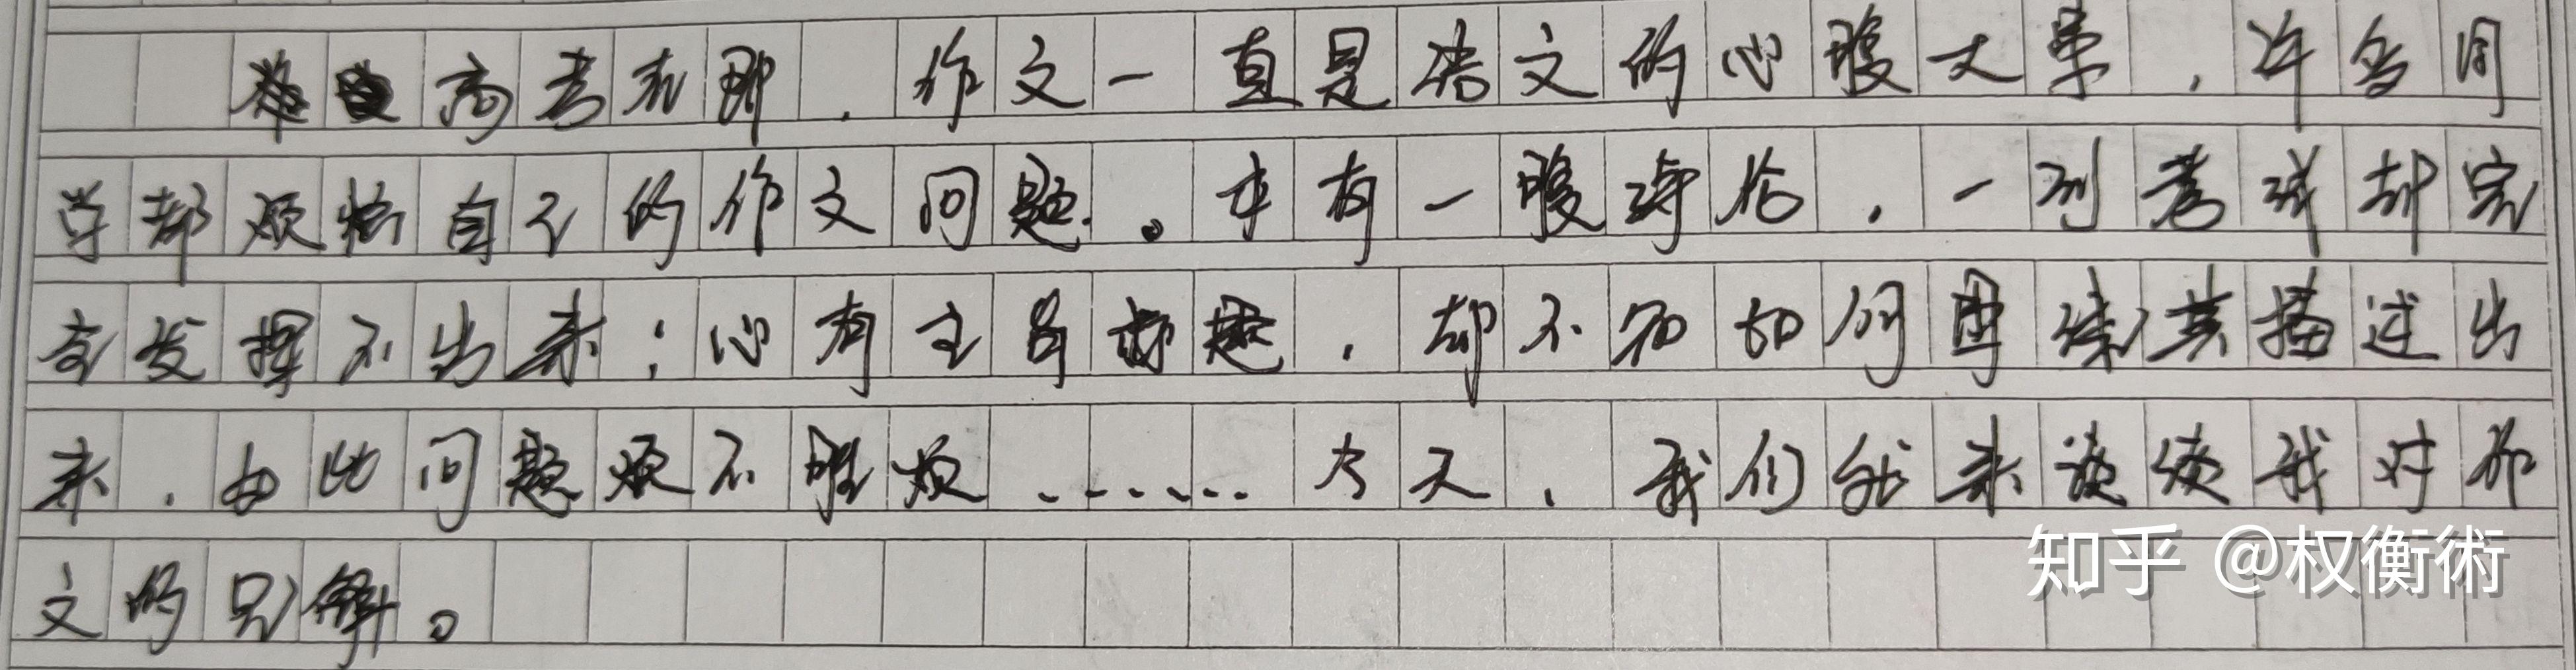 高考在即,作文一直是语文的心腹大患,许多同
学都烦恼自己的作文问题。本有一腹经纶,一到考试却完
全发挥不出来;心有主旨标题,却不知如何围绕其描述出
来,由此问题烦不胜烦……今天,我们就来谈谈我对作
文的见解。
知乎 @权衡術